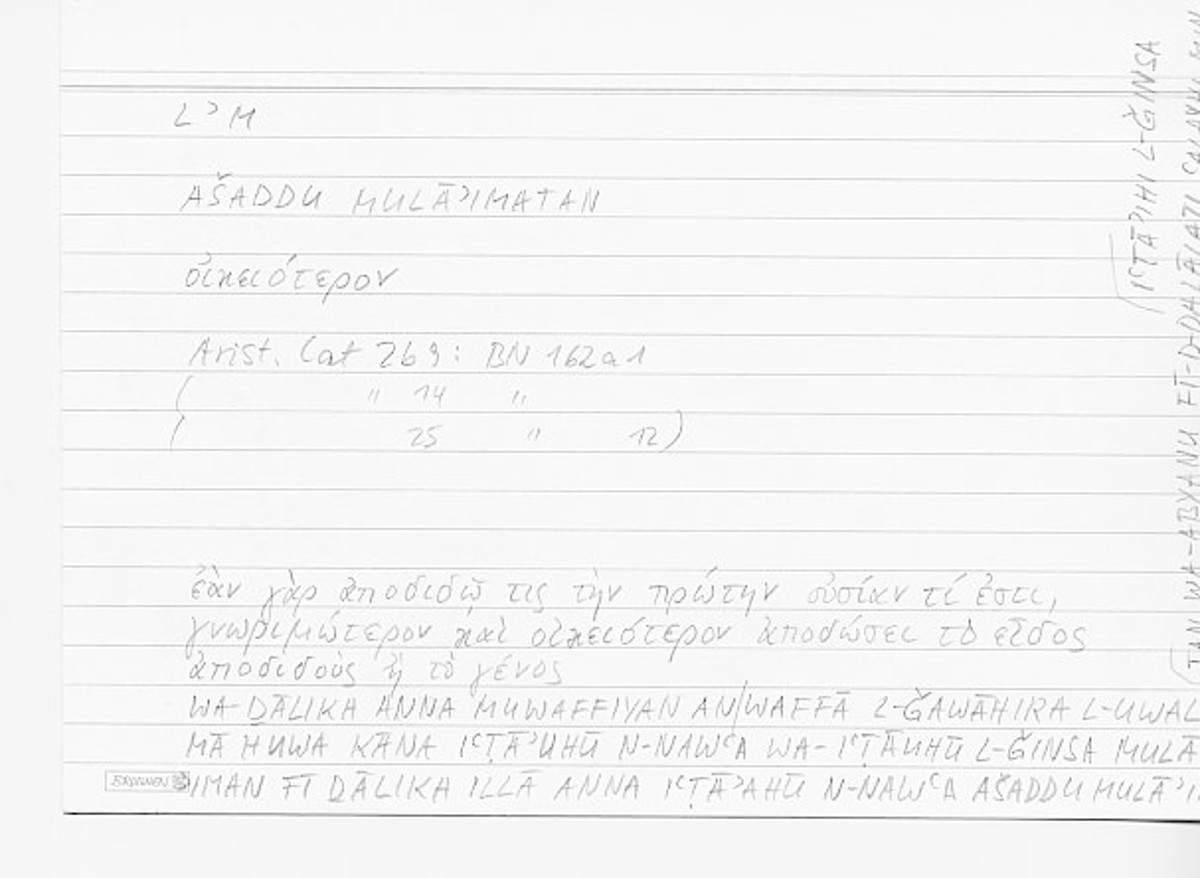 LʾM
AŠADDU MULĀʾIMATAN
οἰκειότερον
Arist. Cat 2b9: BN 162a1
( " 14 "
25 " 12)
ἐὰν γὰρ ἀποδιδῷ τις τὴν πρώτην οὐσίαν τί ἐστι,
γνωριμώτερον καὶ οἰκειότερον ἀποδώσει τὸ εἶδος
ἀποδιδοὺς ἢ τὸ γένος
WA-ḎĀLIKA ANNA MUWAFFIYAN AN/WAFFĀ L-ǦAWĀHIRA L-UWAL
MĀ HUWA KĀNA IʿṬĀʾUHŪ N-NAWʿA WA-IʿṬĀUHŪ L-ǦINSA MULĀ
ʾIMAN FĪ ḎĀLIKA ILLĀ ANNA IʿṬĀʾAHŪ N-NAWʿA AŠADDU MULĀʾI
(TAN WA-ABYANU FĪ-D-DALĀLATI ʿALAYHI MIN
(IʿṬĀʾIHI L-ǦINSA